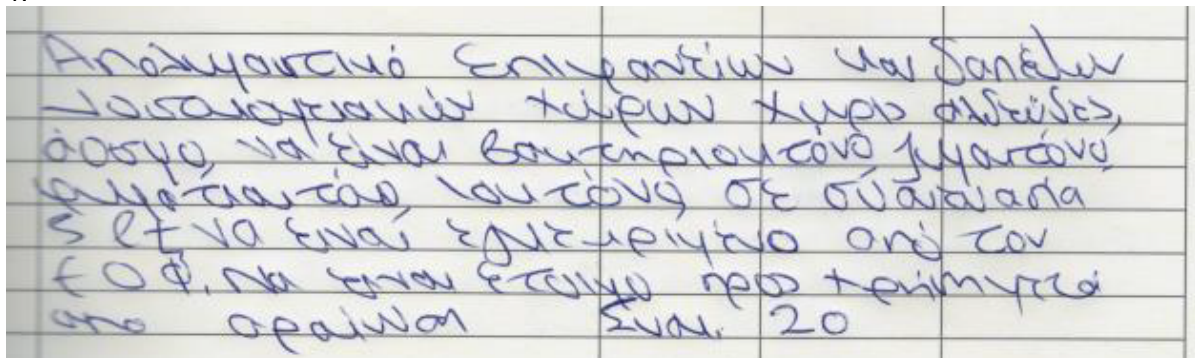 Απολυμαντικό επιφανειών και δαπέδων
νοσοκομειακών χώρων χωρίς αλδεΰδες,
άοσμο, να είναι βακτηριοκτόνο,
ιοκτόνο, σε συσκευασία
5 lt να είναι εγκεκριμένο από τον
ΕΟΦ. Να είναι έτοιμο προς χρήση μετά
από αραίωση Συσκ. 20